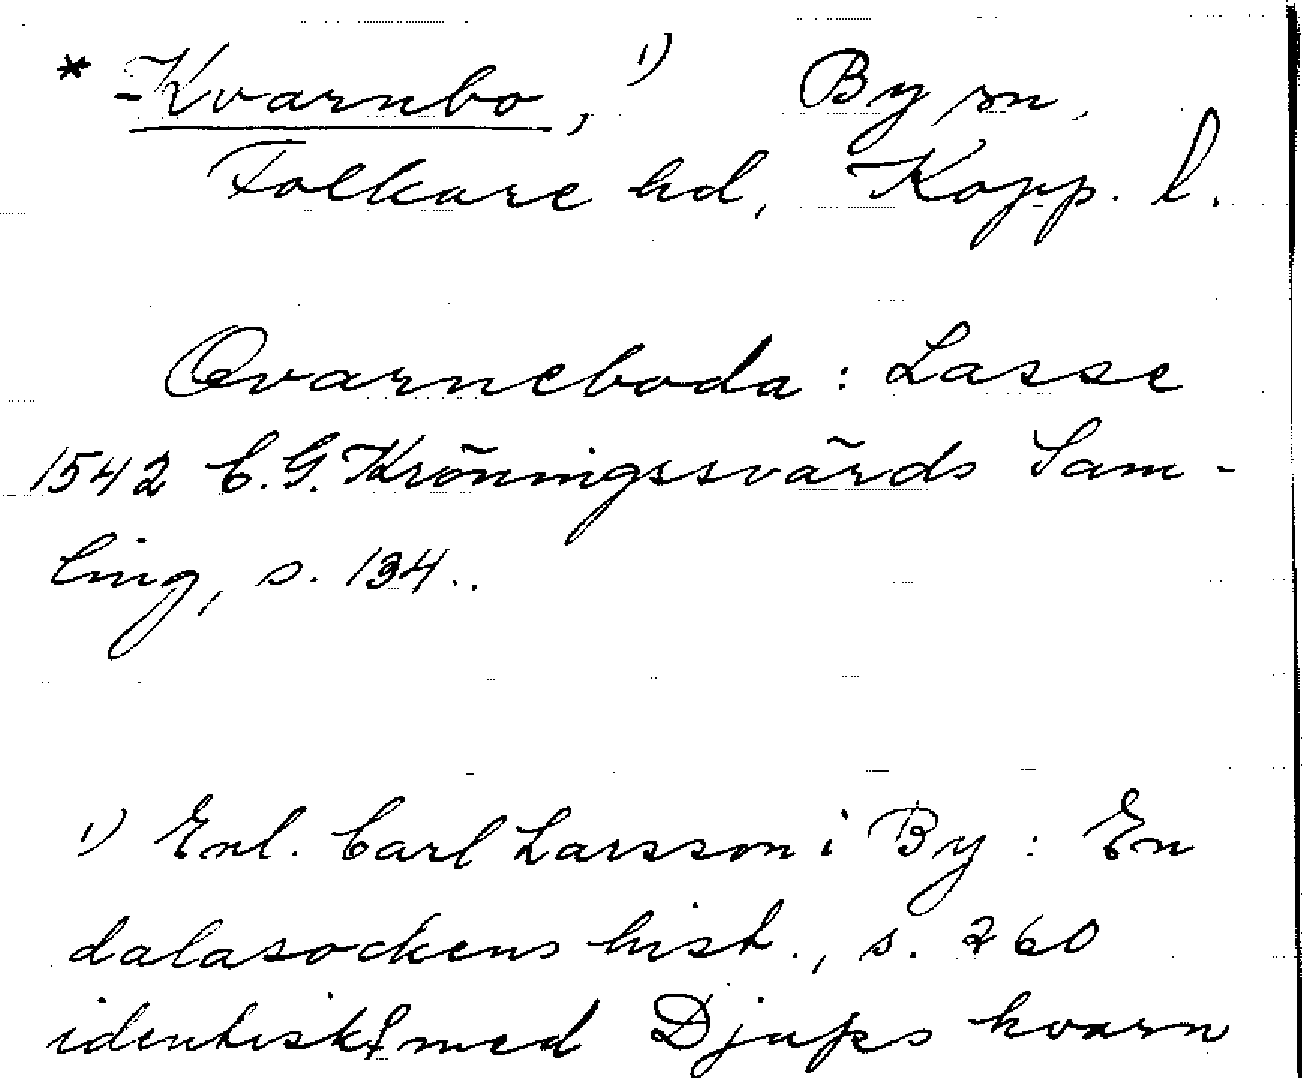 * Kvarnbo, 1) By sn,
Folkare hd, Kopp. l.
Qvarneboda : Lasse
1542 C.G. Kröningssvärds Sam-
ling, s. 134..
1) Enl. Carl Larsson i By : En
dalasockens hist., s. 260
identiskt med Djups kvarn